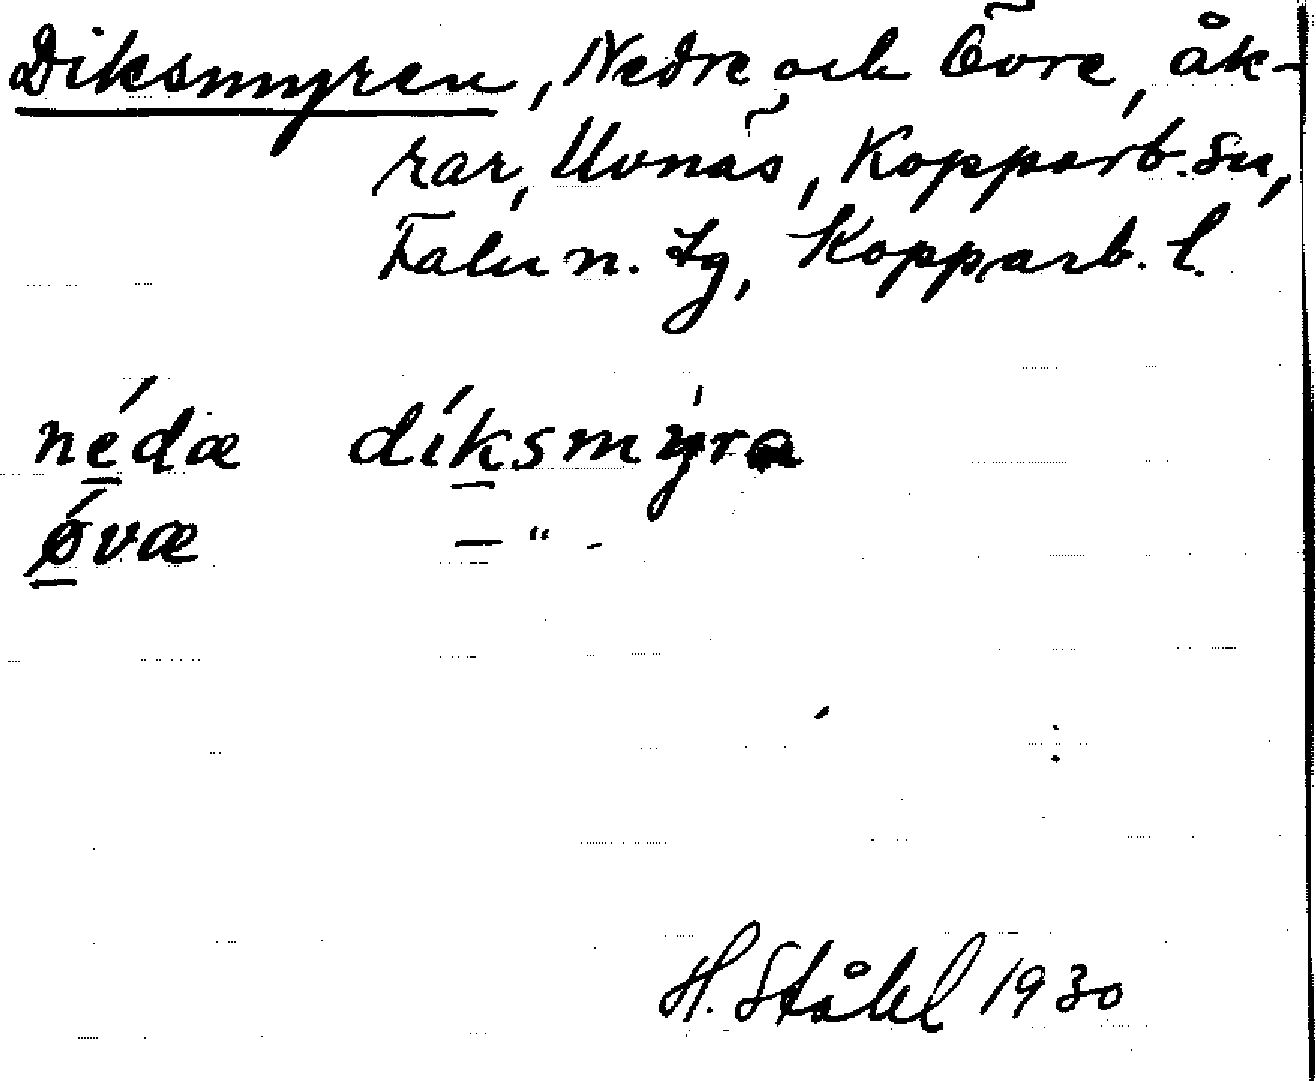 Diksmyren, Nedre och Övre, åk-
rar, Uvnäs, Kopparb. sn,
Falu n. tg, Kopparb. l.
nédæ díksmýra
ǿvæ — " -
H. Ståhl 1930